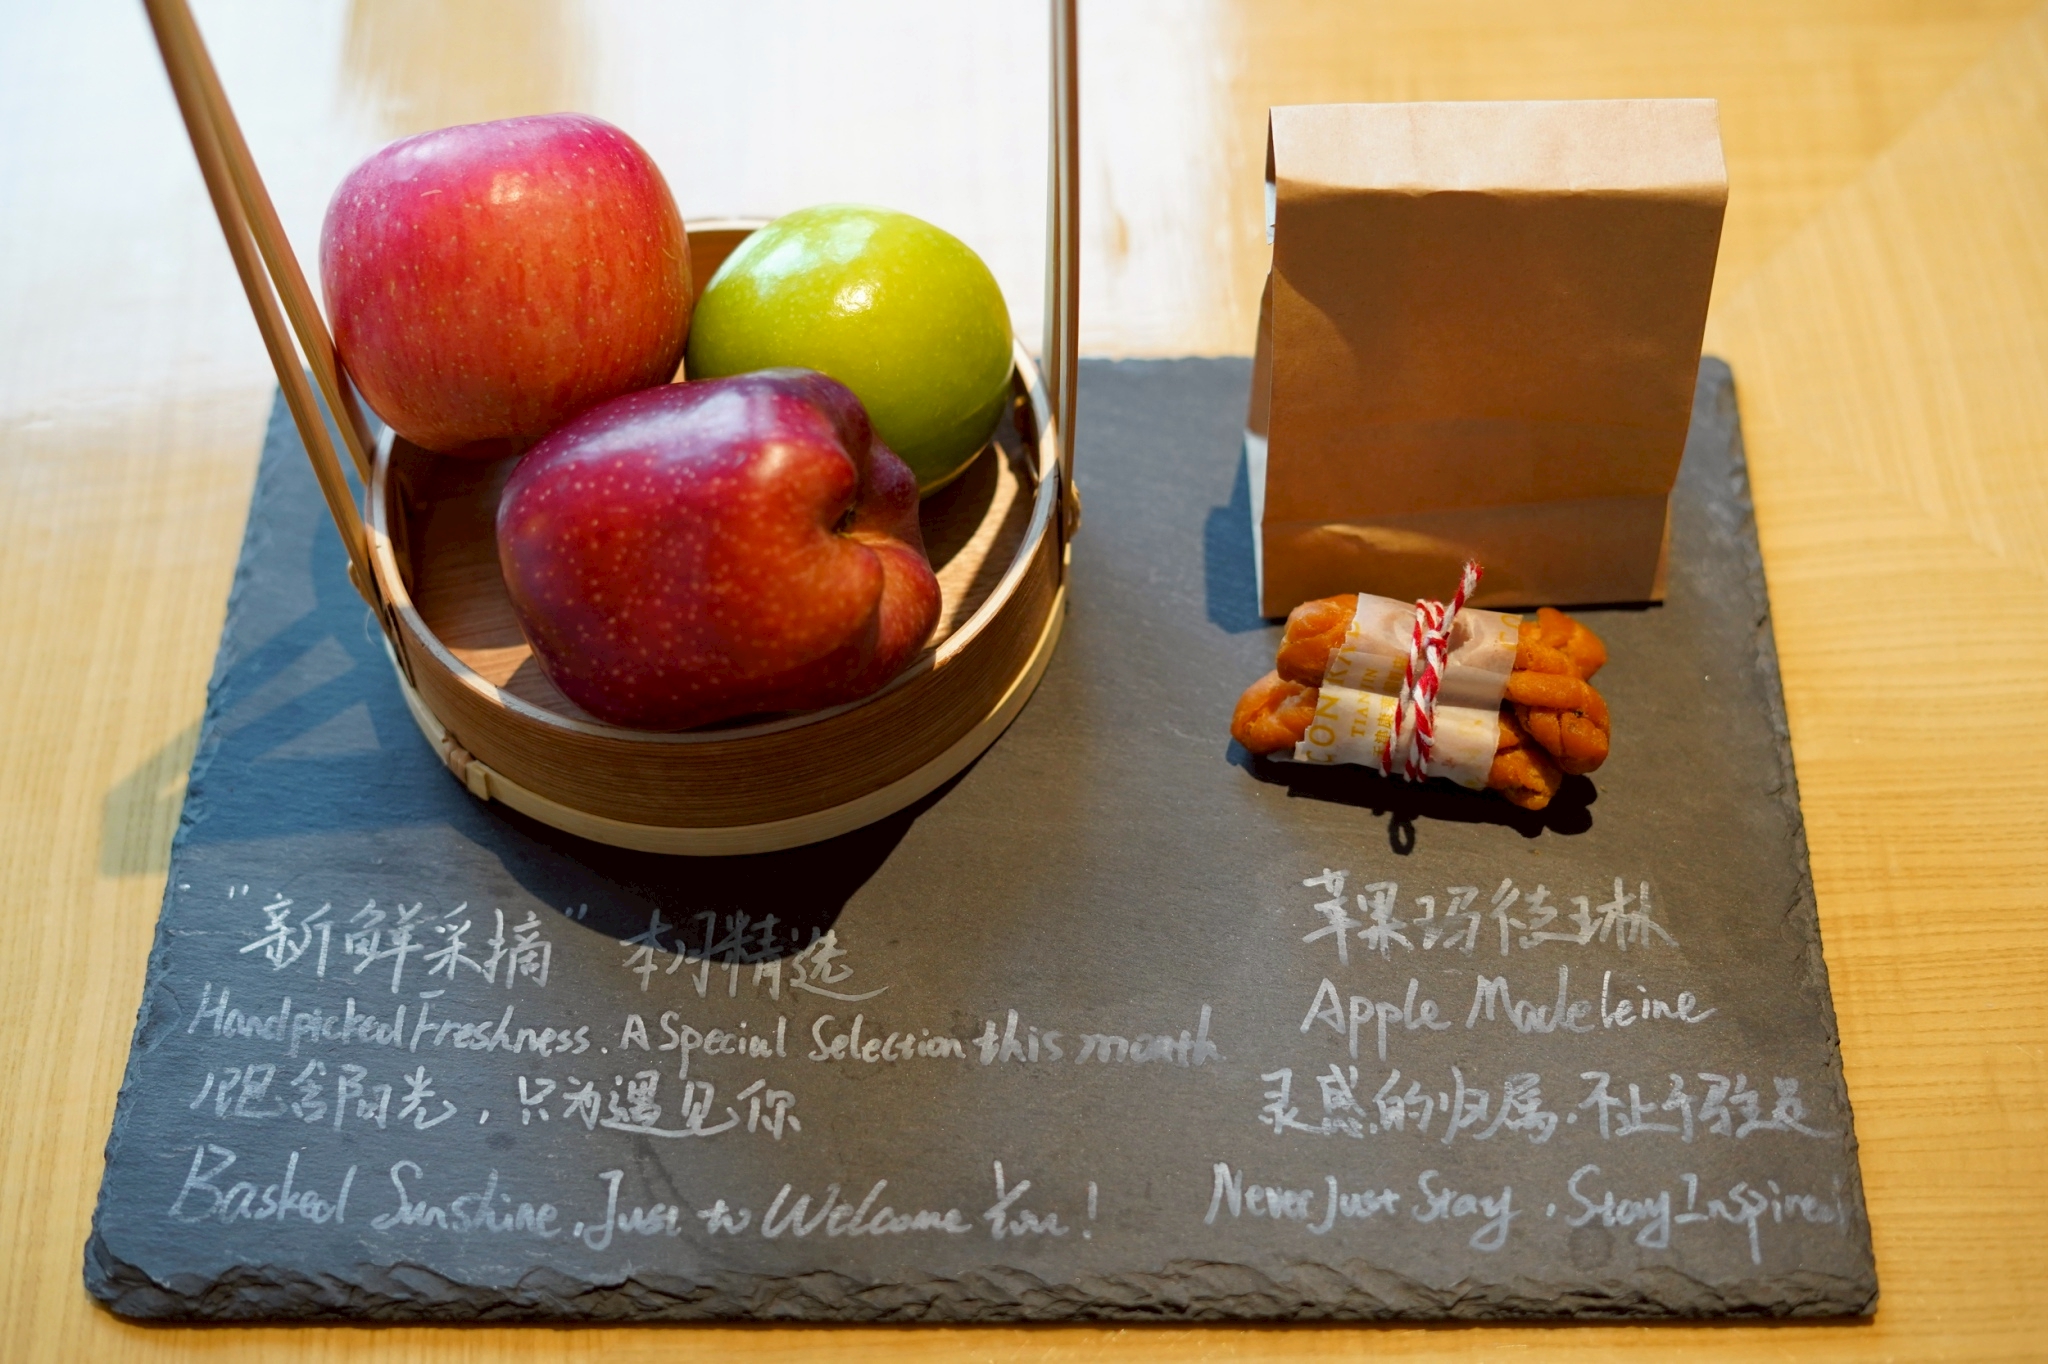 "新鲜采摘" 本月精选
Handpicked Freshness. A Special Selection this month
饱含阳光，只为遇见你
Basked Sunshine. Just to Welcome You!
TIANJIN
苹果玛德琳
Apple Madeleine
灵感的归属.不止于驻足
Never Just Stay. Stay Inspired